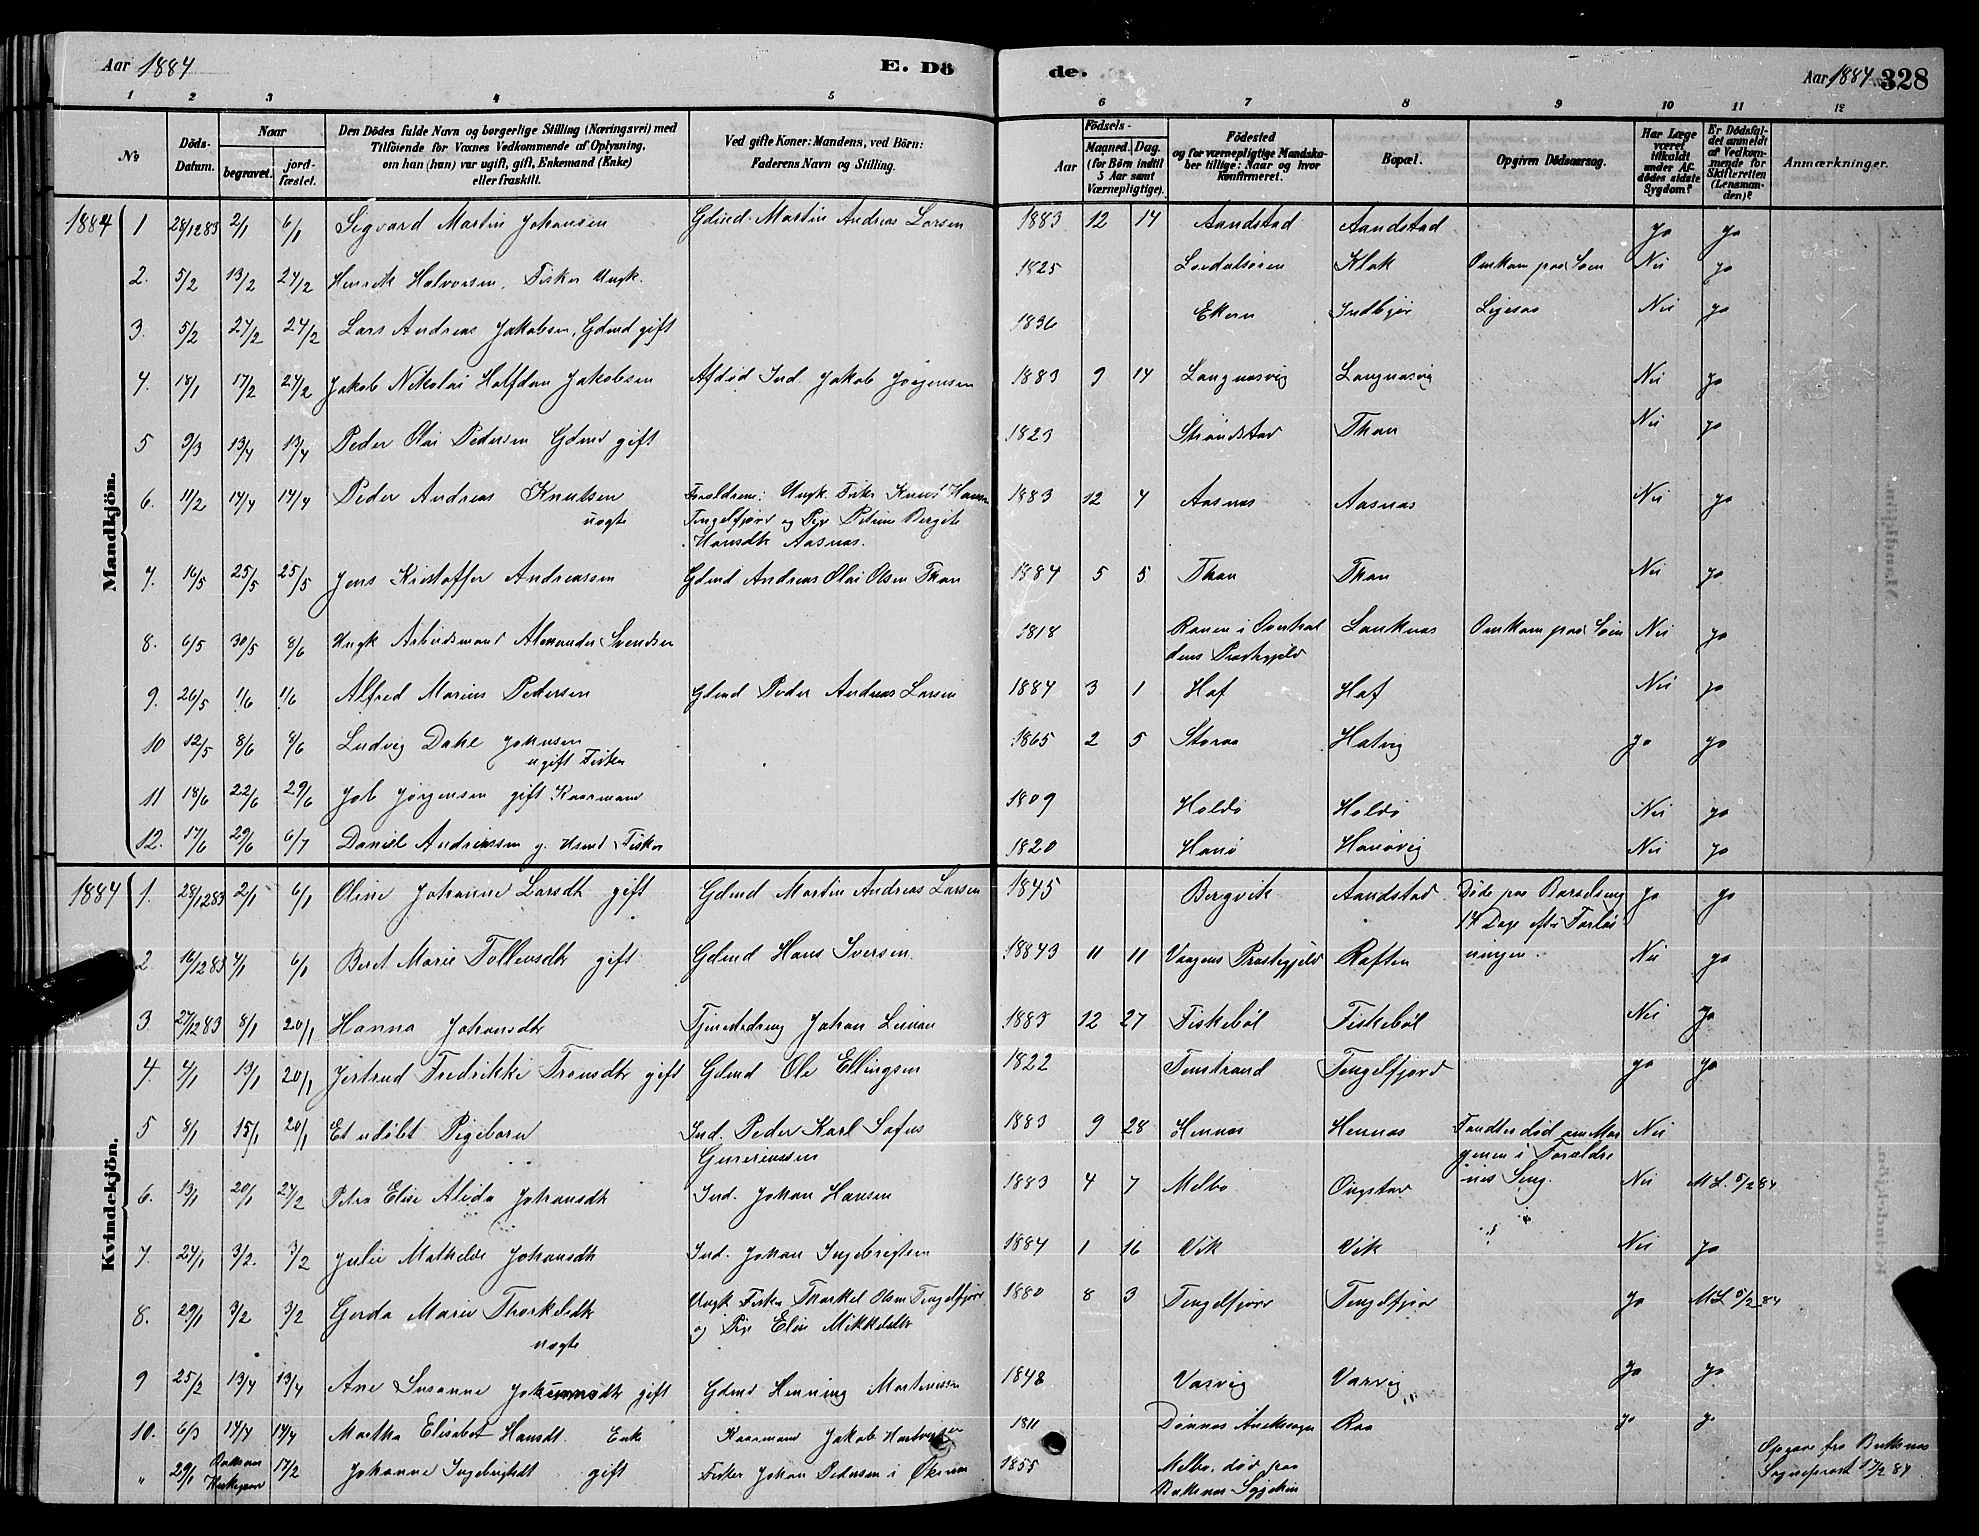 Aar 1884
E. Dö
de.
Aar 1884 328
1 2 3 4 5 6 7 8 9 10 11 12
No
Döds-Datum.
Naar
begravet.
jord-fæstet.
Den Dödes fulde Navn og borgerlige Stilling (Næringsvei) med
Tilföiende for Voxnes Vedkommende af Oplysning,
om han (hun) var ugift, gift, Enkemand (Enke)
eller fraskilt.
Ved gifte Koner: Mandens, ved Börn:
Faderens Navn og Stilling.
Födsels-
Aar
Maaned. Dag.
(for Börn indtil
5 Aar samt
Værnepligtige).
Födested
og for værnepligtige Mandska-
ber tillige: Naar og hvor
konfirmeret.
Bopæl.
Opgiven Dödsaarsag.
Har Læge
været
tilkaldt
under Af-
dödes sidste
Sygdom?
Er Dödsfal-
det anmeldt
af Vedkom-
mende for
Skifteretten
(Lensman-
den)?
Anmærkninger.
Mandkjön.
1884 1 28/12 83 2/1 6/1 Sigvard Martin Johansen Gdmd Martin Andreas Larsen 1883 12 14 Aandstad Aandstad ja ja
2. 5/2 13/2 24/2 Henrik Halvorsen, Fisker Ungk. 1825 Klak Omkom paa Søen Nei ja
3. 5/2 24/2 24/2 Lars Andreas Jakobsen, Gdmd gift 1836 Ekern Indbjør Nei ja
4. 18/1 17/2 24/2 Jakob Nikolai Halfdan Jakobsen Afdød Ind. Jakob Jørgensen 1883 9 14 Langnasvig Langnasvig Nei ja
5 9/3 13/4 13/4 Peder Olai Pedersen Gdmd gift 1823 Strandstad Thon Nei ja
6. 11/2 14/4 14/4 Peder Andreas Knutsen
uægte
Forældrene: Ungk. Fisker Knud Hansen
Tengelfjord og Pige Petrine Bergite
Hansdtr Aasnas.
1883 12 4 Aasnas Aasnas Nei ja
7. 16/5 25/5 25/5 Jens Kristoffer Andreassen Gdmd Andreas Olai Olsen Thon 1884 5 5 Thon Thon Nei ja
8. 6/5 30/5 8/6 Ungk Arbeidsmand Alexander Svendsen 1818 Ranen i
Præstegjeld
Lanknas Omkom paa Søen Nei ja
9. 26/5 1/6 1/6 Alfred Marius Pedersen Gdmd Peder Andreas Larsen 1884 3 1 Haf Haf Nei ja
10 12/5 8/6 8/6 Ludvig Dahl Johnsen
ugift Fisker
1865 2 5 Storaa Hatvig ja ja
11 18/6 22/6 29/6 Job Jørgensen gift Kaarmand 1809 Holdø Holdø Nei ja
12. 17/6 29/6 6/7 Daniel Andreassen g. Husmd Fisker 1820 Hanø Hanøvig Nei ja
Kvindekjön.
1884 1. 28/12 83 2/1 6/1 Oline Johanne Larsdtr gift Gdmd Martin Andreas Larsen 1845 Bergvik Aandstad Døde paa Barselseng
14 Dage efter Forløs
ningen.
ja ja
2. 16/12 83 4/1 6/1 Beret Marie Tollevsdtr gift Gdmd Hans Iversen 18843 11 11 Vaagens Præstegjeld Raften Nei ja
3 27/12 83 8/1 20/1 Hanna Johansdtr Tjenestedreng Johan 1883 12 27 Fiskebøl Fiskebøl Nei ja
4. 4/1 13/1 20/1 Jertrud Fredrikke Tronsdtr gift Gdmd Ole Ellingsen 1822 Tenstrand Tengelfjord ja ja
5 8/1 15/1 20/1 Et udøbt Pigebarn Ind. Peder Karl Sofus

1883 9 28 Hennas Hennas Fandtes død om Mor
genen i Forældre
nes Seng.
Nei
6. 13/1 20/1 24/2 Petra Elise Alida Johansdtr Ind. Johan Hansen 1883 4 7 Melbo Ongstad Nei ML. 5/2 84
7. 24/1 3/2 3/2 Julie Mathilde Johansdtr Ind. Johan Ingebrigtsen 1884 1 16 Vik Vik Nei ja
8. 29/1 3/2 3/2 Gerda Marie Thorkelsdtr
uægte
Ungk Fisker Thorkel Olsen Tengelfjord
og Pige Elen Mikkelsdtr
1880 8 3 Tengelfjord Tengelfjord ja ML 5/2 84
9 25/2 13/4 13/4 Ane Susanne gift Gdmd Henning Martinussen 1848 Vasvig Vasvig ja ja
10. 6/3 14/4 14/4 Martha Elisabet Hansdt. Enke Kaarmand Jakob 1811 Dønnas Raa ja ja
" 29/1 17/2 Johanne Ingebrigtsdt gift Fisker Johan Pedersen i Øksnas 1855 Melbo, død paa

Opgave fra
Sogneprest 17/2 84